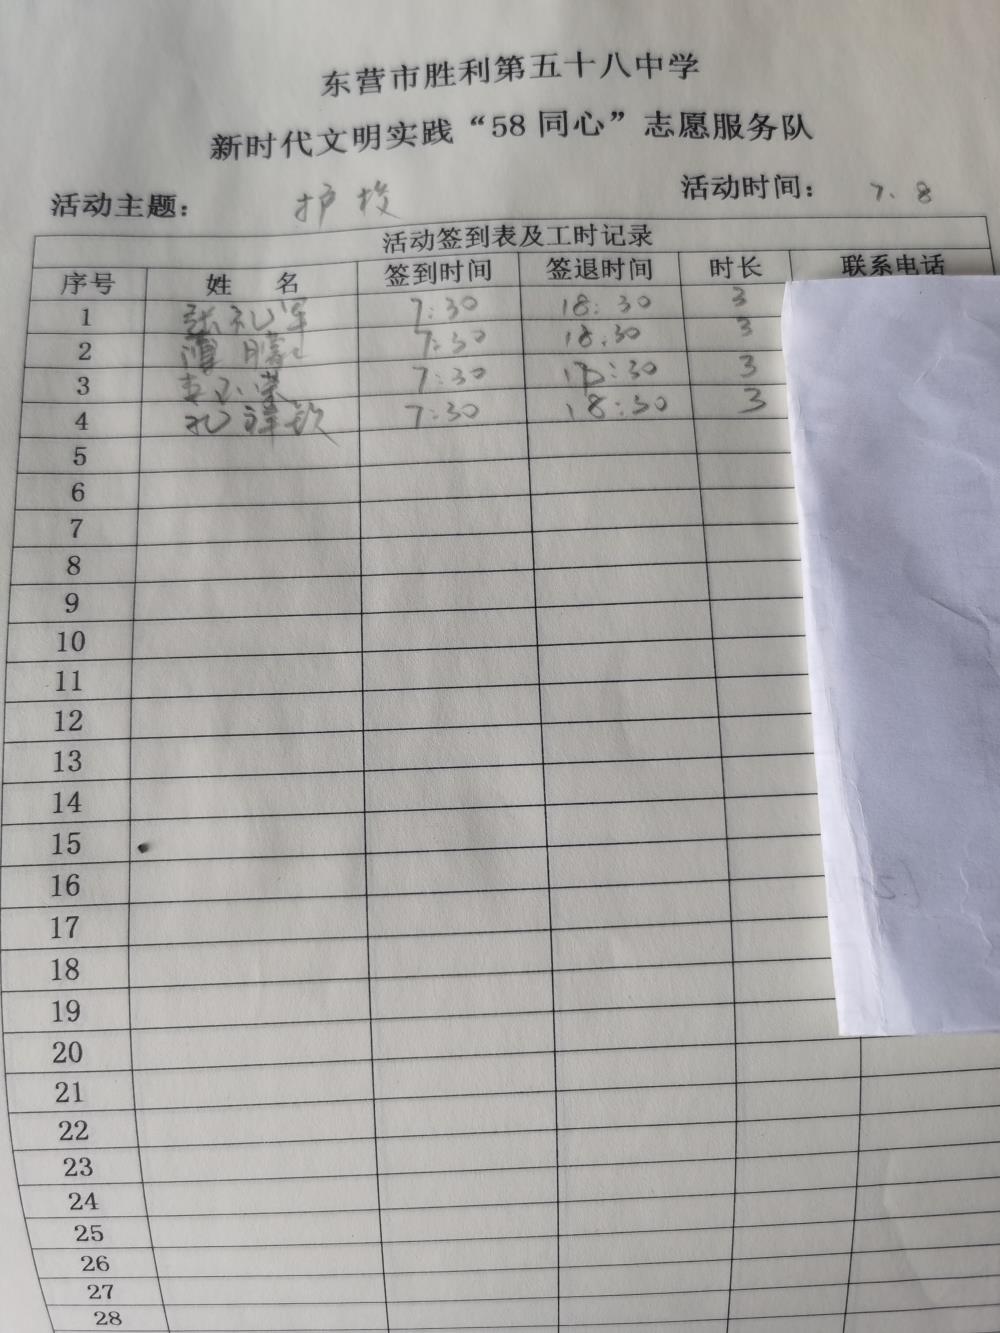 东营市胜利第五十八中学
新时代文明实践“58 同心”志愿服务队
活动主题： 护校 活动时间： 7.8
活动签到表及工时记录
序号 姓 名 签到时间 签退时间 时长 联系电话
1 张礼军 7:30 18:30 3
2 7:30 18:30 3
3 7:30 :30 3
4 孔祥钦 7:30 18:30 3
5
6
7
8
9
10
11
12
13
14
15
16
17
18
19
20
21
22
23
24
25
26
27
28